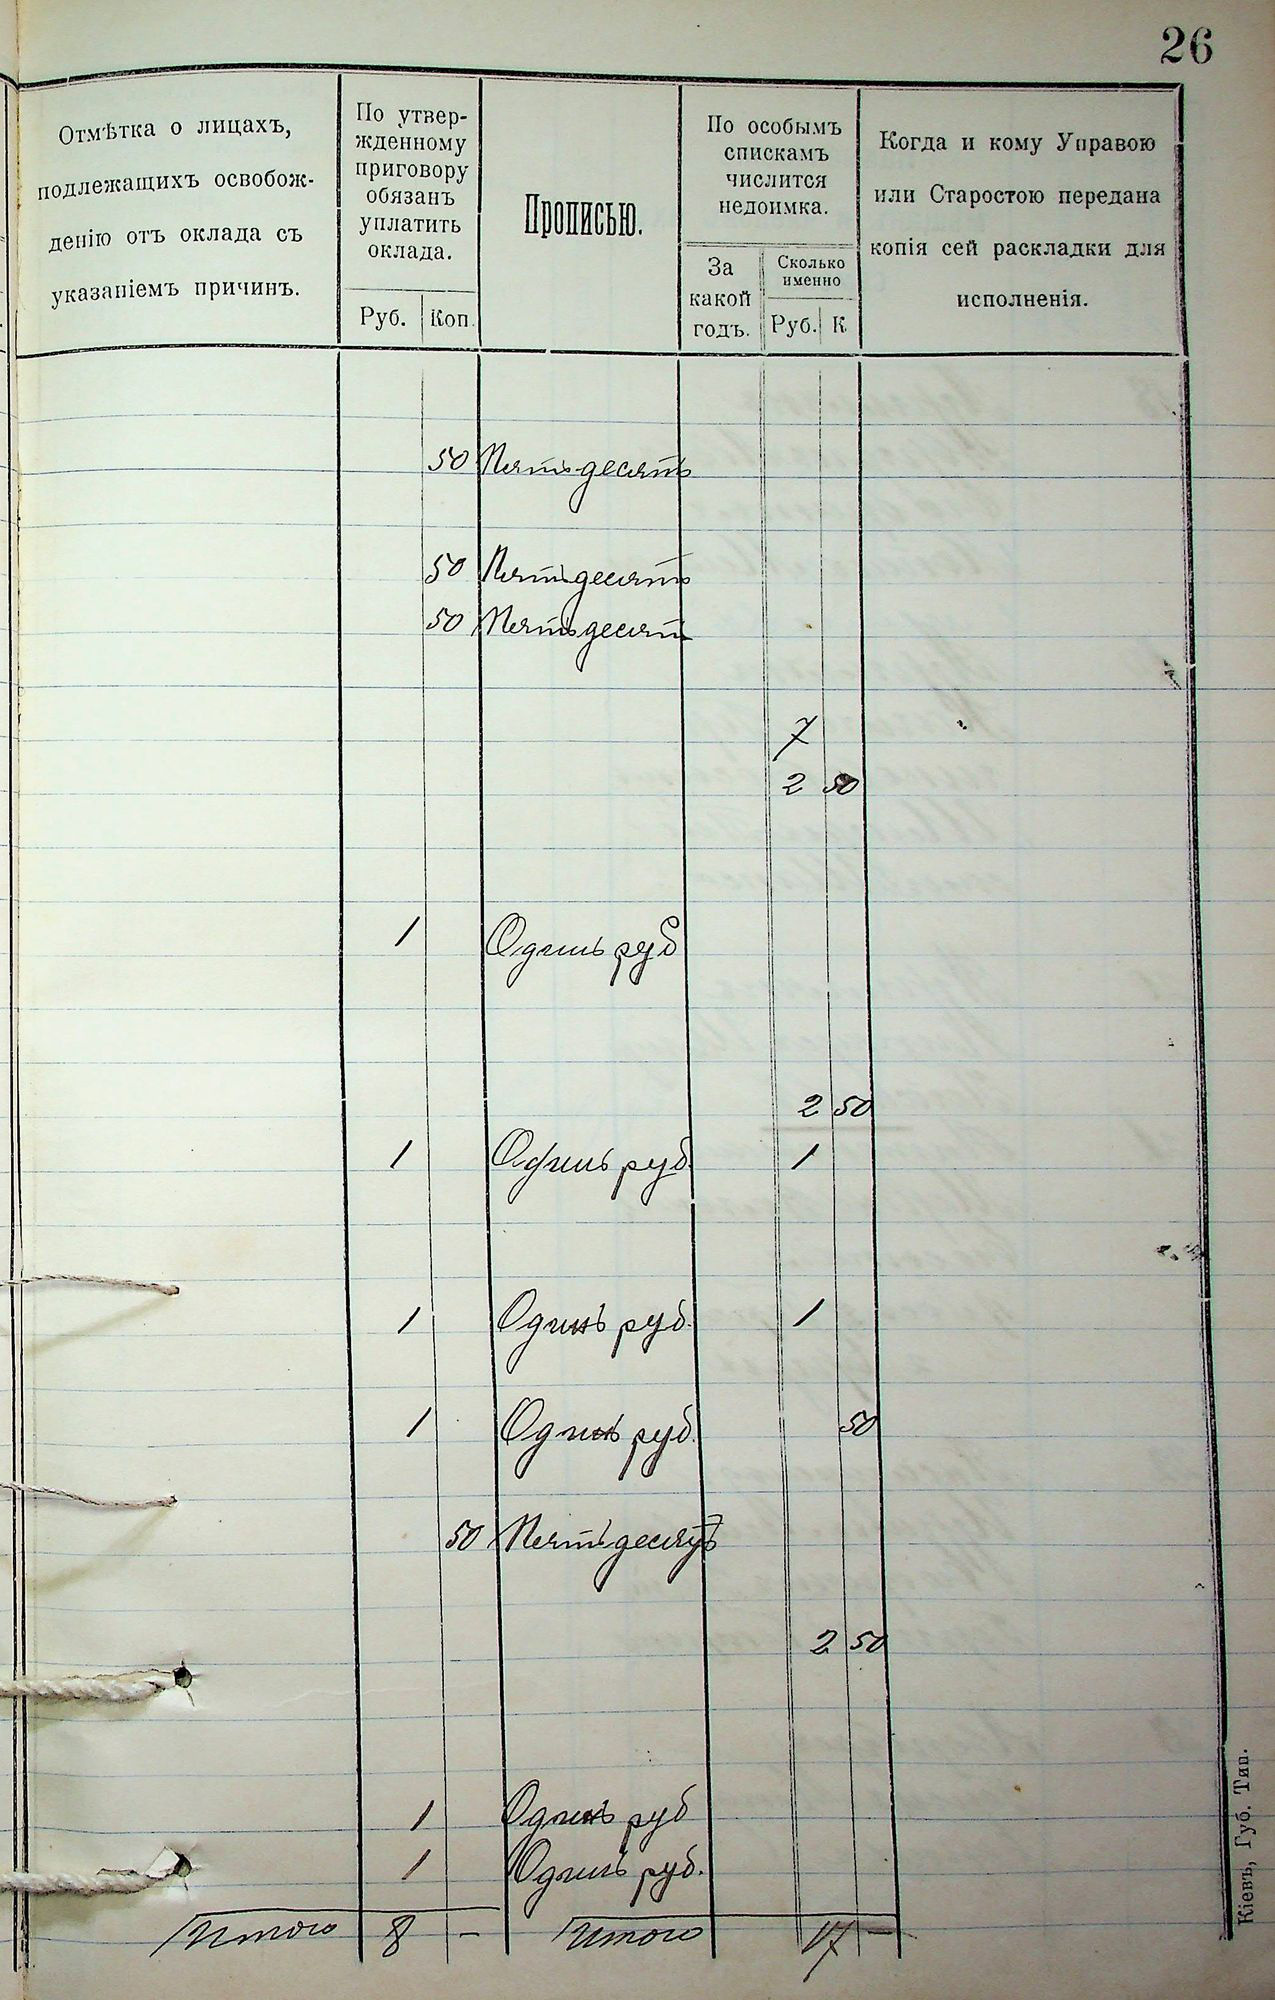 26
Отмѣтка о лицахъ,
подлежащихъ освобож-
денію отъ оклада съ
указаніемъ причинъ.
По утвер-
жденному
приговору
обязанъ
уплатить
оклада.
Руб. Коп.
Прописью.
По особымъ
спискамъ
числится
недоимка.
За
какой
годъ.
Сколько
именно
Руб. К.
Когда и кому Управою
или Старостою передана
копія сей раскладки для
исполненія.
50 Пятьдесятъ
50 Пятьдесятъ
50 Пятьдесят
7
2 50
1 Одинъ руб
2 50
1 Одинъ руб. 1
1 Одинъ руб. 1
1 Одинъ руб. 50
50 Пятьдесятъ
2 50
1 Одинъ руб
1 Одинъ руб.
Итого 8 - Итого 17 -
Кіевъ, Губ. Тип.